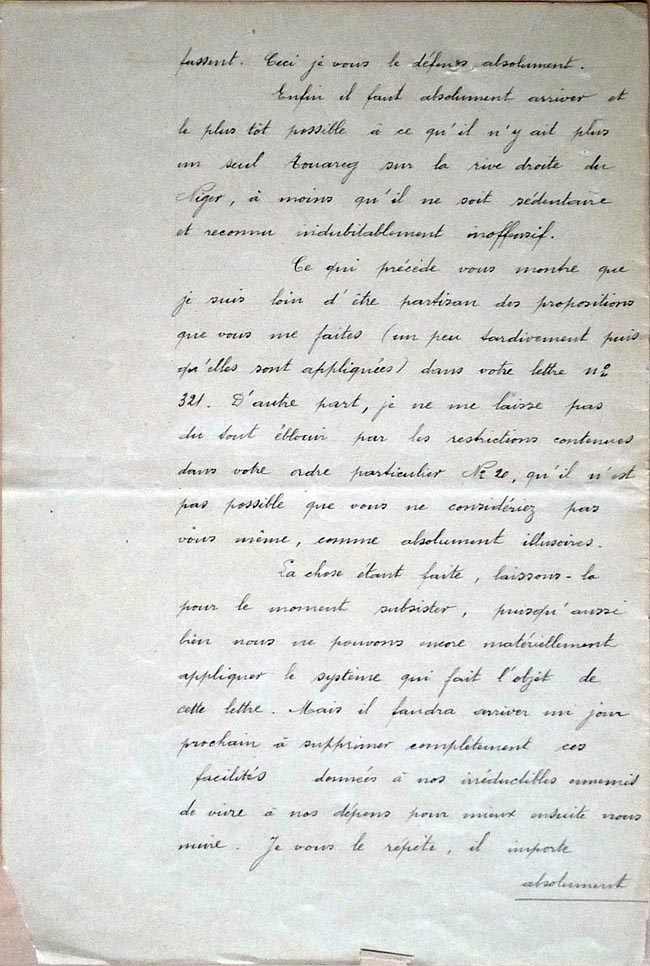 fussent. Ceci je vous le défends absolument.
Enfin il faut absolument arriver et
le plus tôt possible à ce qu'il n'y ait plus
un seul Touareg sur la rive droite du
Niger, à moins qu'il ne soit sédentaire
et reconnu indubitablement inoffensif.
Ce qui précède vous montre que
je suis loin d'être partisan des propositions
que vous me faites (un peu tardivement puis
qu'elles sont appliquées) dans votre lettre nº
321. D'autre part, je ne me laisse pas
du tout éblouir par les restrictions contenues
dans votre ordre particulier Nº 20, qu'il n'est
pas possible que vous ne considériez pas
vous même, comme absolument illusoires.
La chose étant faite, laissons-la
pour le moment subsister, puisqu'aussi
bien nous ne pouvons encore matériellement
appliquer le système qui fait l'objet de
cette lettre. Mais il faudra arriver un jour
prochain à supprimer complètement ces
facilités données à nos irréductibles ennemis
de vivre à nos dépens pour mieux ensuite nous
nuire. Je vous le répète, il importe
absolument